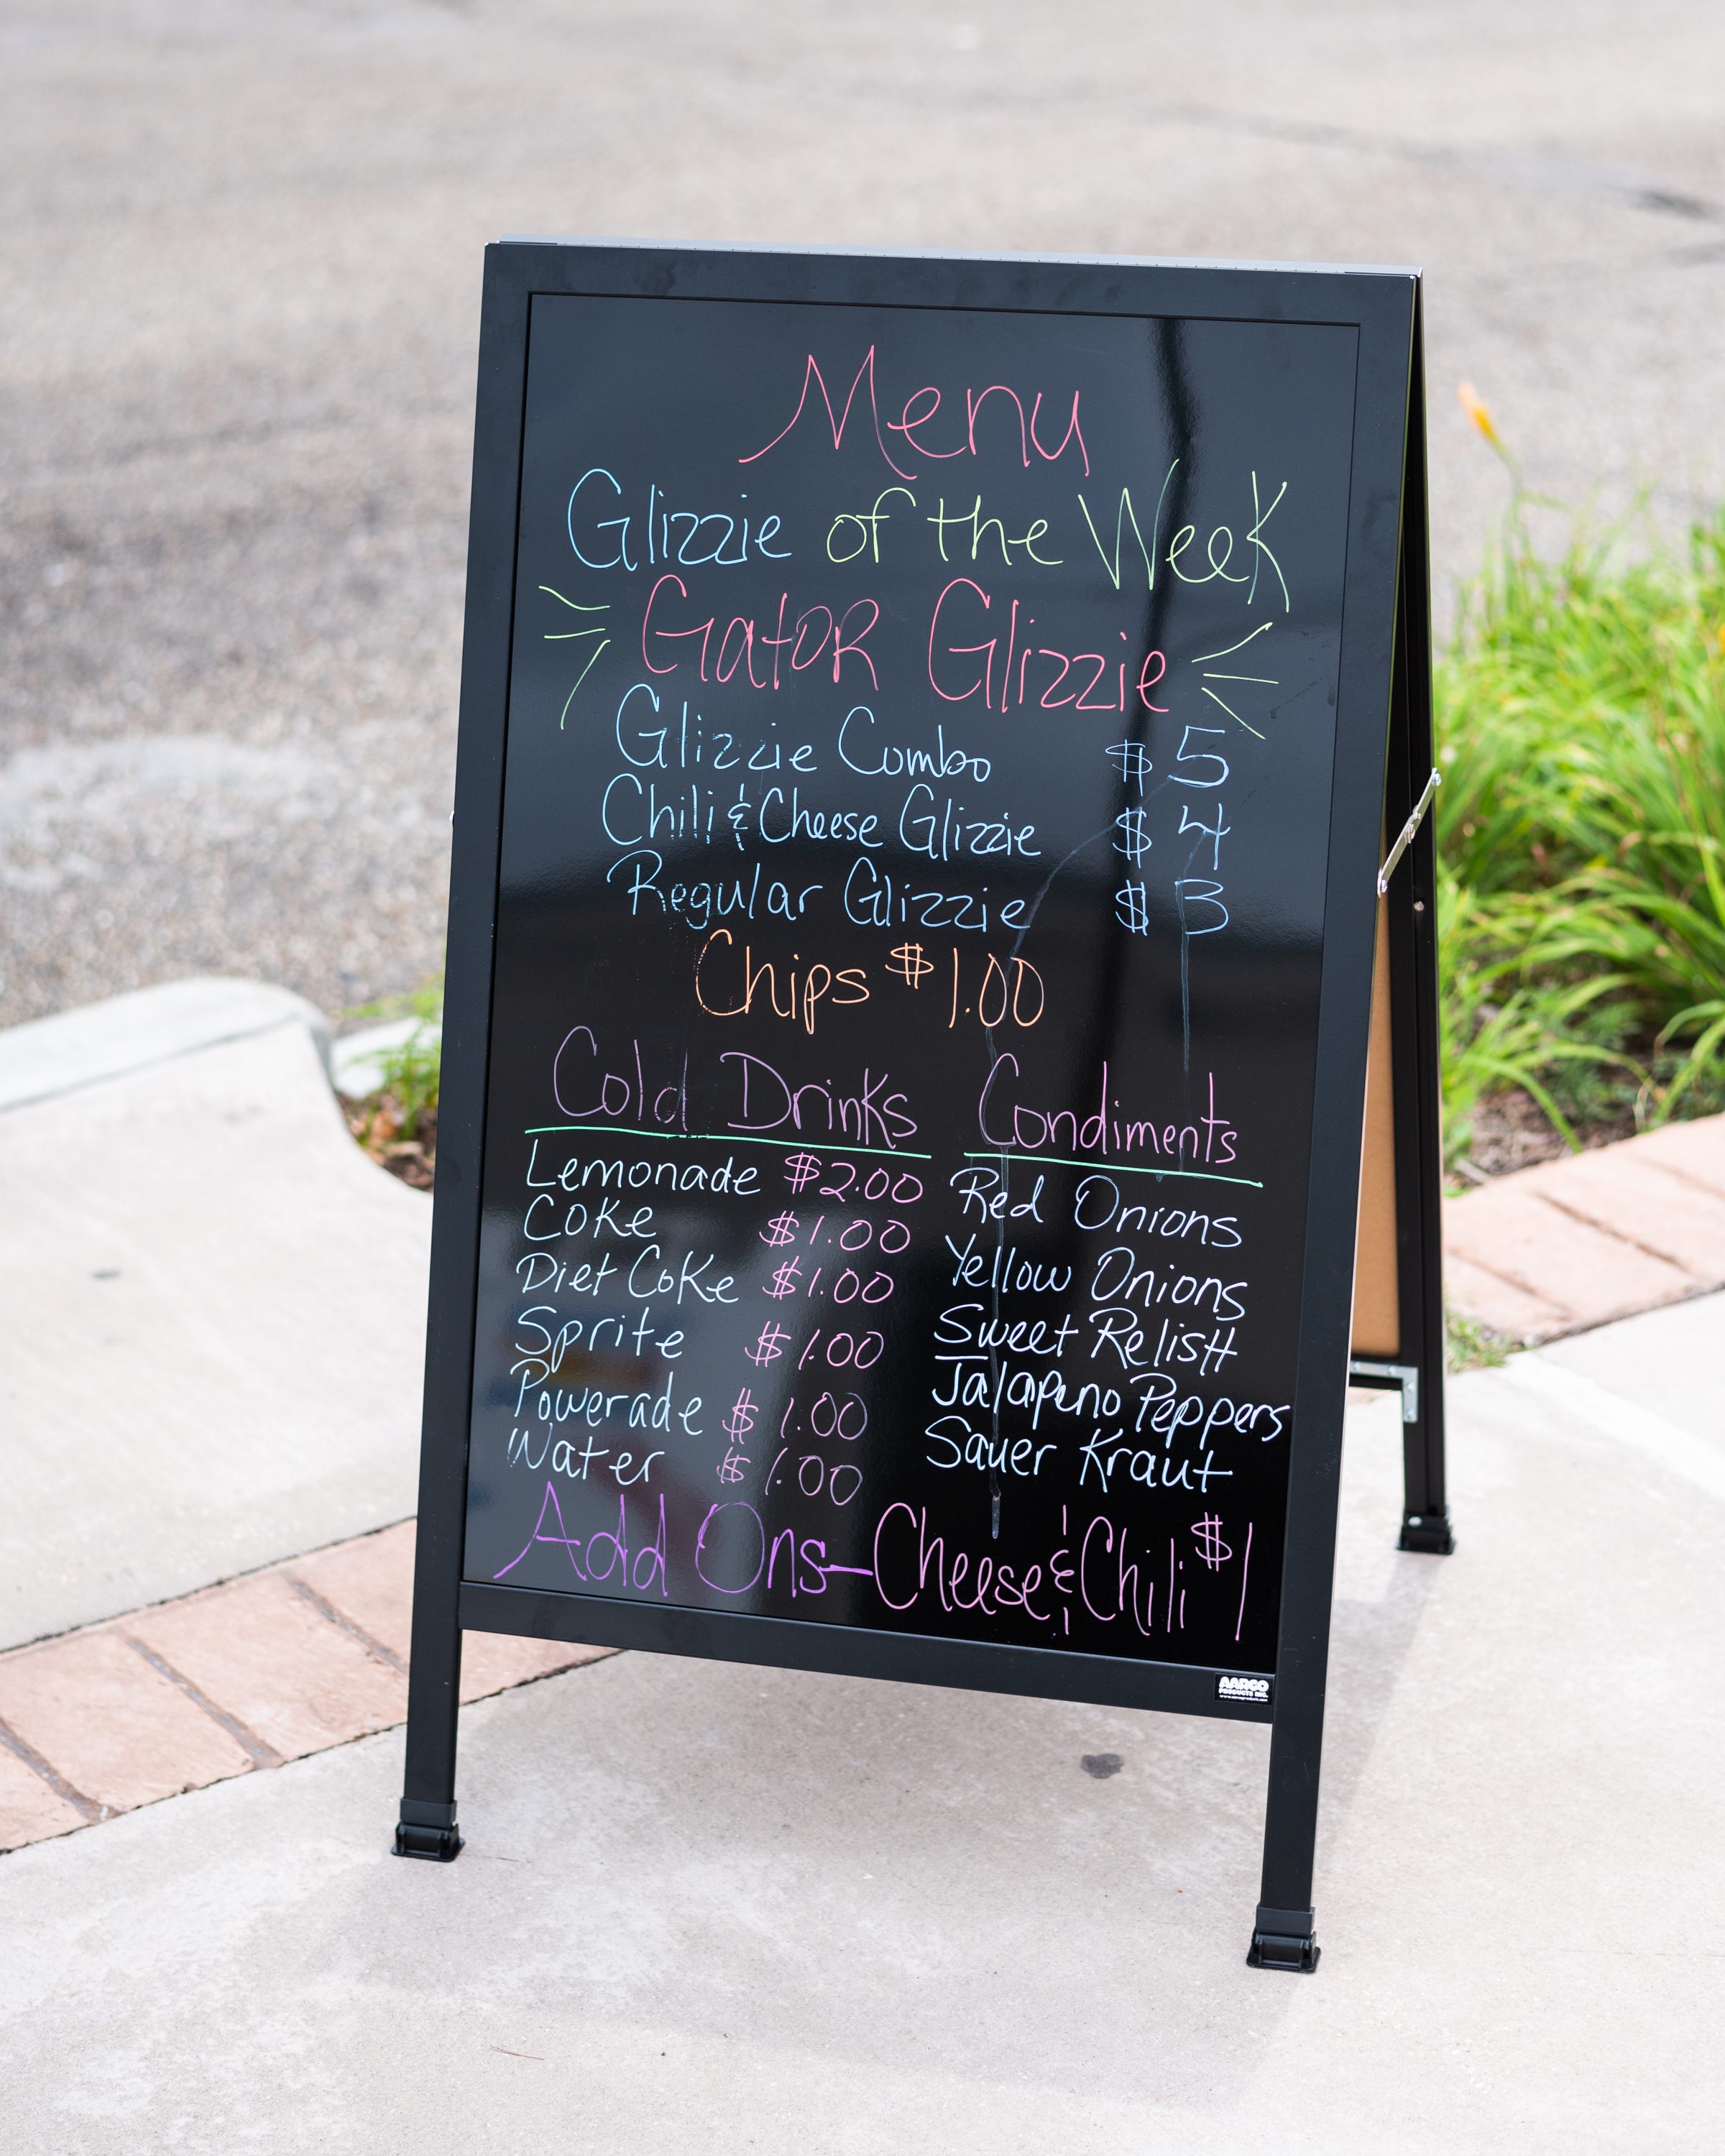 Menu
Glizzie of the Week
Gator Glizzie
Glizzie Combo $5
Chili & Cheese Glizzie $4
Regular Glizzie $3
Chips $1.00
Cold Drinks
Lemonade $2.00
Coke $1.00
Diet Coke $1.00
Sprite $1.00
Powerade $1.00
Water $1.00
Condiments
Red Onions
Yellow Onions
Sweet Relish
Jalapeno Peppers
Sauer Kraut
Add Ons—Cheese & Chili $1
AARCO
PRODUCTS INC.